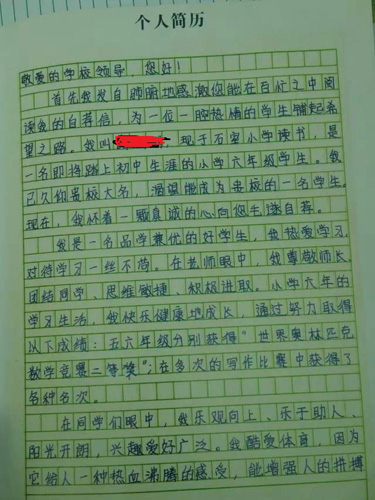 个人简历
敬爱的学校领导，您好！
首先我发自肺腑地感激您能在百忙之中阅
读我的自荐信，为一位一腔热情的学生铺起希
望之路。我叫，现于石室小学读书，是
一名即将踏上初中生涯的小学六年级学生。我
已久仰贵校大名，渴望能成为贵校的一名学生。
现在，我怀着一颗真诚的心向您毛遂自荐。
我是一名品学兼优的好学生，我热爱学习，
对待学习一丝不苟。在老师眼中，我尊敬师长、
团结同学、思维敏捷、积极进取。小学六年的
学习生活，我快乐健康地成长，通过努力取得
以下成绩：五六年级分别获得"世界奥林匹克
数学竞赛二等奖"；在多次的写作比赛中获得了
各种名次。
在同学们眼中，我乐观向上、乐于助人、
阳光开朗，兴趣爱好广泛。我酷爱体育，因为
它给人一种热血沸腾的感受，能增强人的拼搏